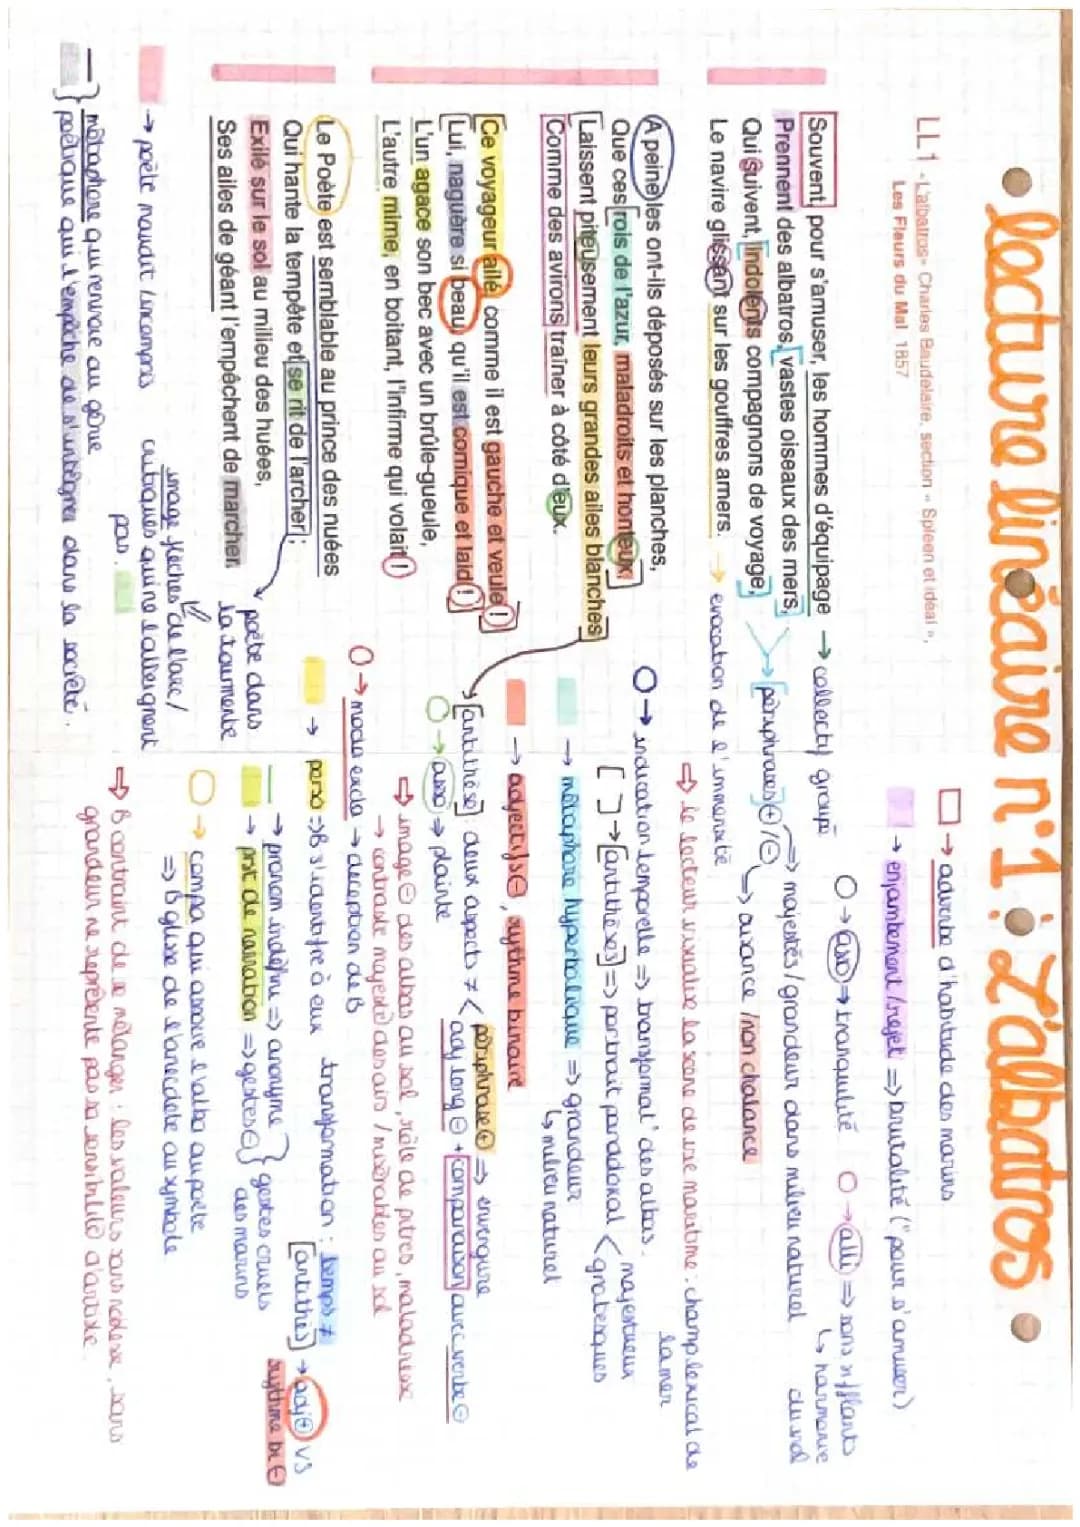 • lecture linéaire n°1 : L'albatros •
LL 1 - L'albatros - Charles Baudelaire, section « Spleen et idéal »,
Les Fleurs du Mal 1857
□ → adverbe d'habitude des marins
→ enjambement /rejet => brutalité ("pour s'amuser)
Souvent, pour s'amuser, les hommes d'équipage → collectif groupe
Prennent des albatros, vastes oiseaux des mers,
Qui suivent, indolents compagnons de voyage,
Le navire glissant sur les gouffres amers.
○ → asso => tranquilité
○ → alli => sons sifflants
↳ harmonie du vol
→ périphrases ⊕/⊖
=> majestés/grandeur dans milieu naturel
→ aisance /non chalance
→ evocation de l'immensité
⇨ le lecteur visualise la scène de vie maritime : champ lexical de la mer
A peine les ont-ils déposés sur les planches,
Que ces rois de l'azur, maladroits et honteux,
Laissent piteusement leurs grandes ailes blanches
Comme des avirons traîner à côté d'eux.
○ → indication temporelle => transformat° des albas.
[ ] → [antithèses] => portrait paradoxal < majestueux
grotesques
→ métaphore hyperbolique => grandeur
↳ milieu naturel
→ adjectifs ⊖, rythme binaire
Ce voyageur ailé, comme il est gauche et veule !
Lui, naguère si beau, qu'il est comique et laid !
L'un agace son bec avec un brûle-gueule,
L'autre mime, en boitant, l'infirme qui volait !
[antithèse] : deux aspects ≠ < périphrase ⊕ => envergure
adj long ⊖ + comparaison avec verbe ⊖
○ → asso => plainte
⇨ image ⊖ des albas au sol, rôle de pitres, maladresse
→ contraste majesté des airs / misérables au sol
○ → moda excla → deception de B
→ perso => B s'identifie à eux
transformation : temps ≠
[antithès] → adj ⊕ vs
rythme bi ⊖
→ pronom indéfini => anonyme
→ prst de narration => gestes ⊖
} gestes cruels des marins
Le Poète est semblable au prince des nuées
Qui hante la tempête et se rit de l'archer ;
Exilé sur le sol au milieu des huées,
Ses ailes de géant l'empêchent de marcher.
→ poète dans la tourmente
○ → compa qui assoxe l'alba au poete
=> B glisse de l'anecdote au symbole
image flèches de l'arc /
critiques qui ne l'atteignent pas.
→ poète maudit / incompris
⇨ B contraint de se mélanger : les valeurs sans noblesse, sans
grandeur ne représente pas sa sensibilité d'artiste
} métaphore qui renvoie au génie
poètique qui l'empêche de s'intégrer dans la société.